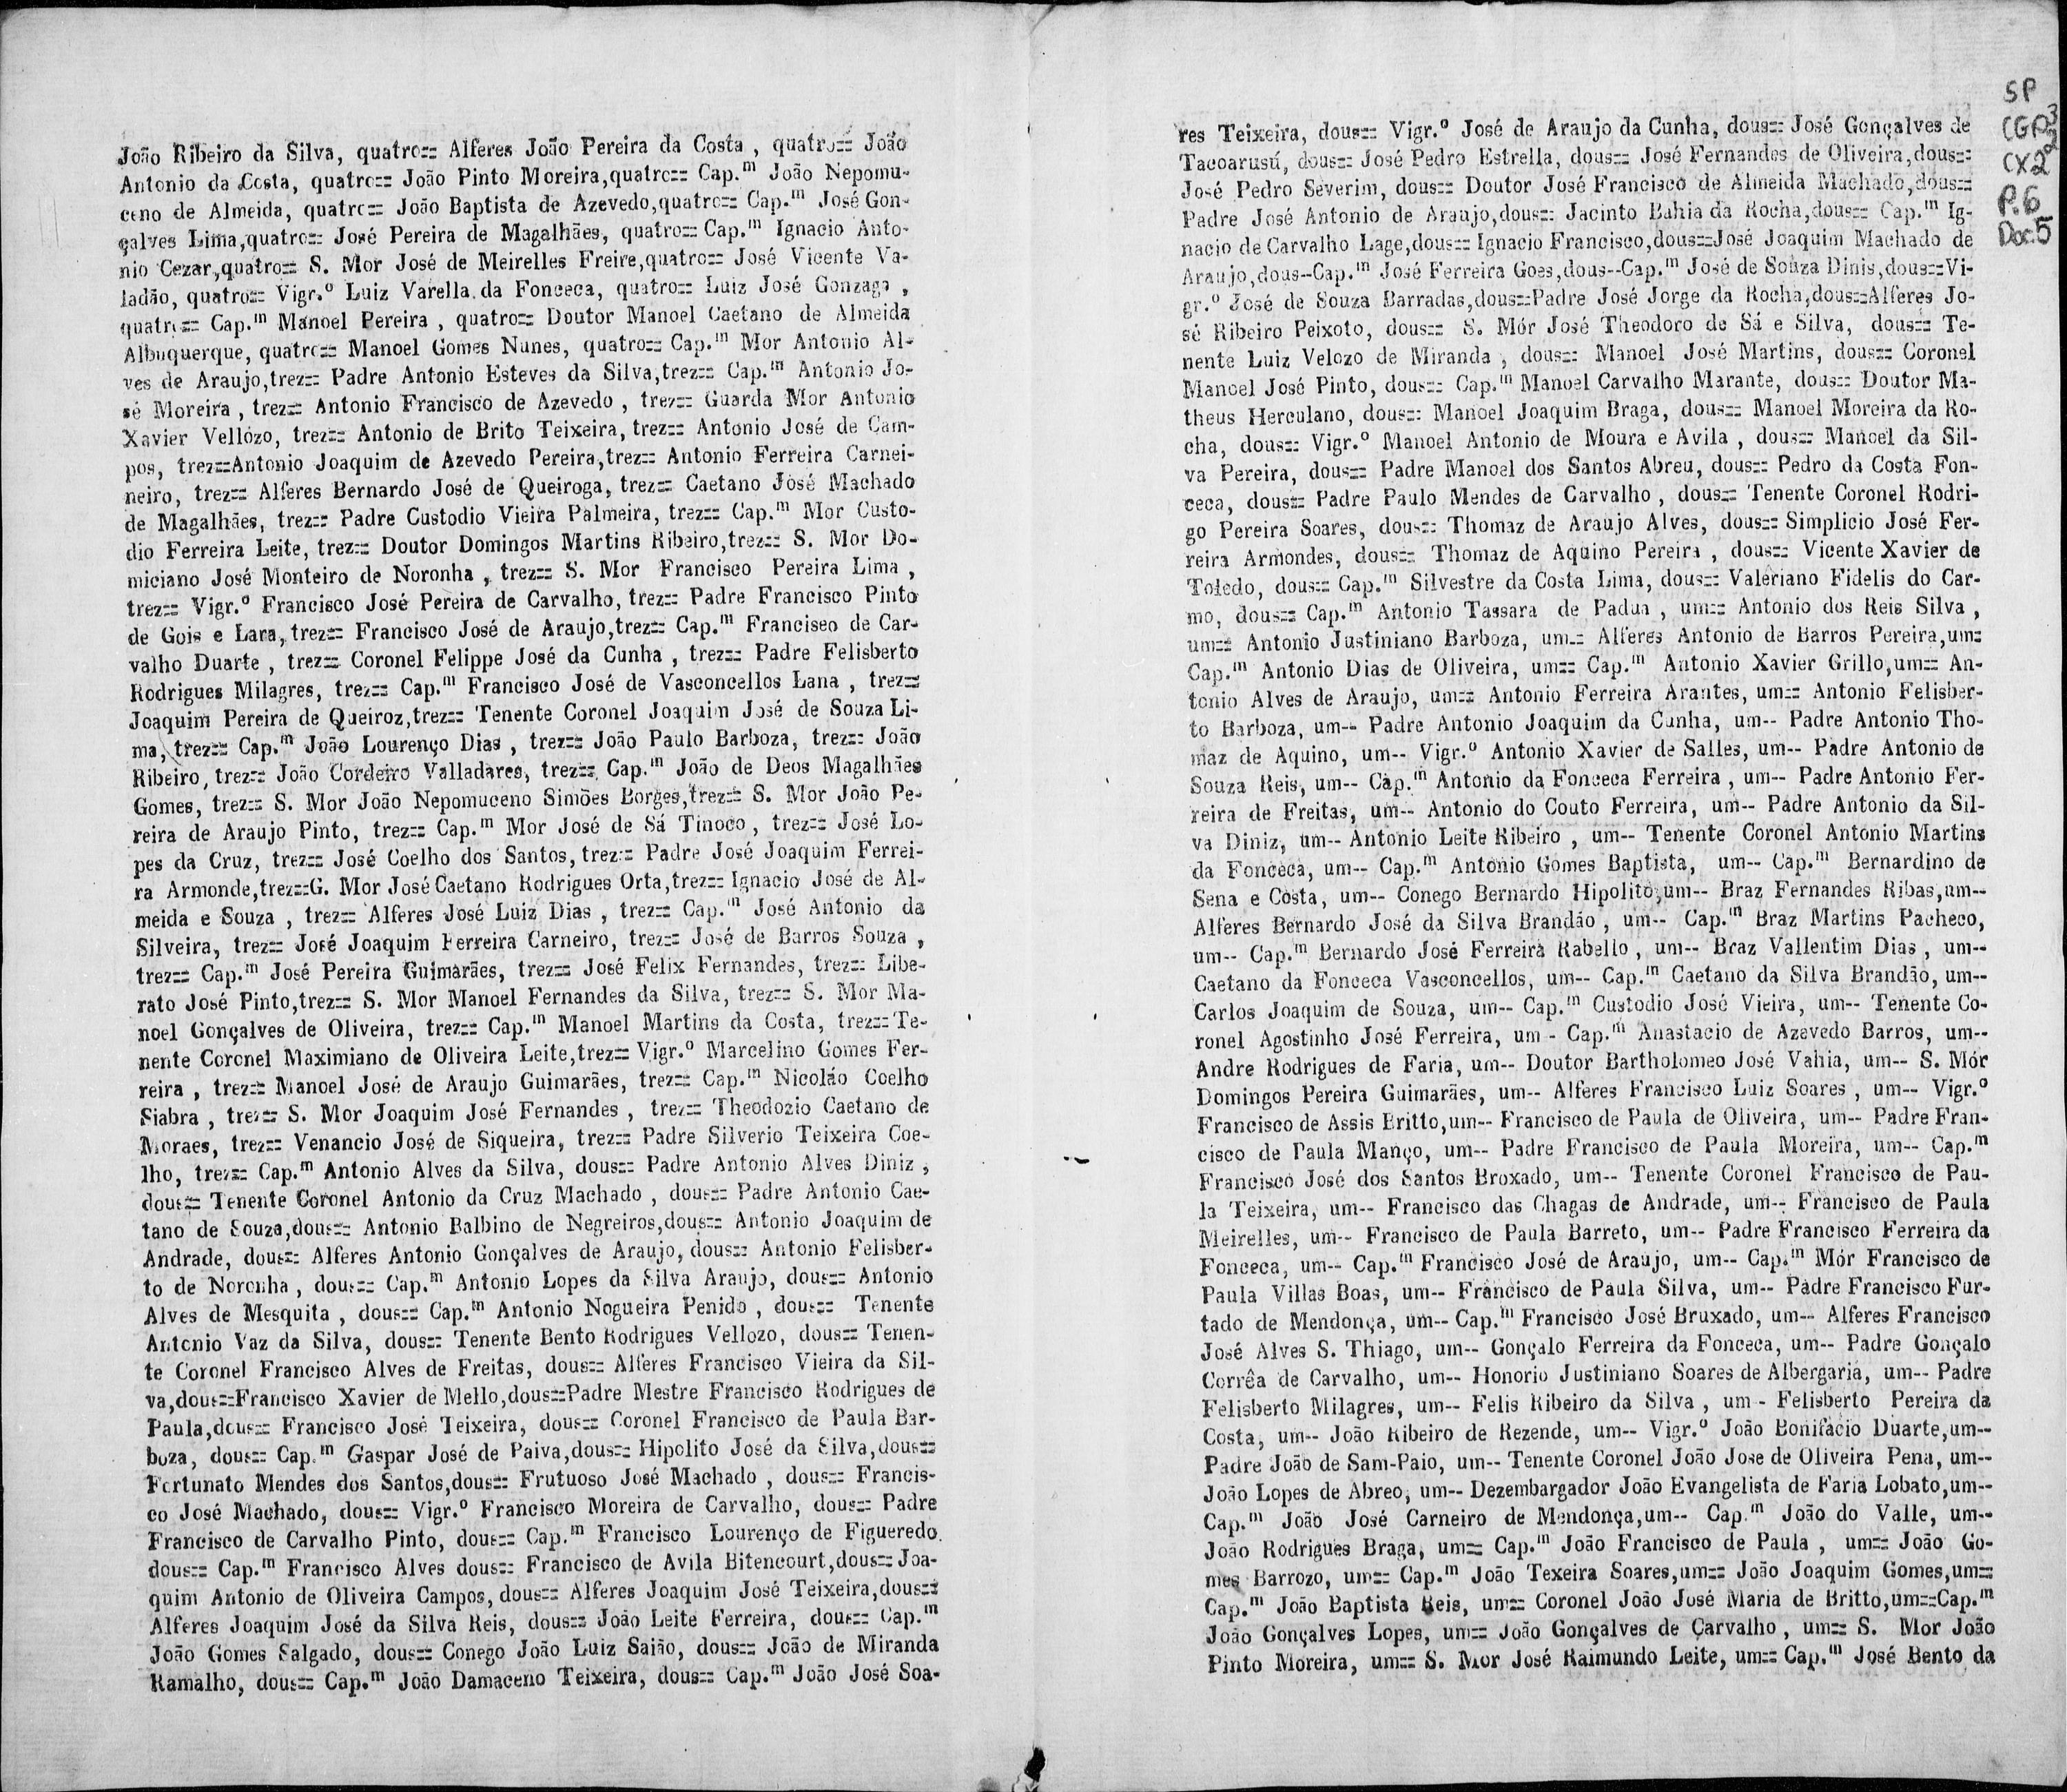 João Ribeiro da Silva, quatro== Alferes João Pereira da Costa , quatro== João
Antonio da Costa, quatro== João Pinto Moreira,quatro== Cap.m João Nepomu-
ceno de Almeida, quatro== João Baptista de Azevedo,quatro== Cap.m José Gon-
çalves Lima,quatro== José Pereira de Magalhães, quatro== Cap.m Ignacio Anto-
nio Cezar,quatro== S. Mor José de Meirelles Freire,quatro== José Vicente Va-
ladão, quatro== Vigr.o Luiz Varella da Fonceca, quatro== Luiz José Gonzaga ,
quatro== Cap.m Manoel Pereira , quatro== Doutor Manoel Caetano de Almeida
Albuquerque, quatro== Manoel Gomes Nunes, quatro== Cap.m Mor Antonio Al-
ves de Araujo,trez== Padre Antonio Esteves da Silva,trez== Cap.m Antonio Jo-
sé Moreira , trez== Antonio Francisco de Azevedo , trez== Guarda Mor Antonio
Xavier Vellozo, trez== Antonio de Brito Teixeira, trez== Antonio José de Cam-
pos, trez==Antonio Joaquim de Azevedo Pereira,trez== Antonio Ferreira Carnei-
neiro, trez== Alferes Bernardo José de Queiroga, trez== Caetano José Machado
de Magalhães, trez== Padre Custodio Vieira Palmeira, trez== Cap.m Mor Custo-
dio Ferreira Leite, trez== Doutor Domingos Martins Ribeiro,trez== S. Mor Do-
miciano José Monteiro de Noronha , trez== S. Mor Francisco Pereira Lima ,
trez== Vigr.o Francisco José Pereira de Carvalho, trez== Padre Francisco Pinto
de Gois e Lara, trez== Francisco José de Araujo,trez== Cap.m Francisco de Car-
valho Duarte , trez== Coronel Felippe José da Cunha , trez== Padre Felisberto
Rodrigues Milagres, trez== Cap.m Francisco José de Vasconcellos Lana , trez==
Joaquim Pereira de Queiroz,trez== Tenente Coronel Joaquim José de Souza Li-
ma, trez== Cap.m João Lourenço Dias , trez== João Paulo Barboza, trez== João
Ribeiro, trez== João Cordeiro Valladares, trez== Cap.m João de Deos Magalhães
Gomes, trez== S. Mor João Nepomuceno Simões Borges,trez== S. Mor João Pe-
reira de Araujo Pinto, trez== Cap.m Mor José de Sá Tinoco , trez== José Lo-
pes da Cruz, trez== José Coelho dos Santos, trez== Padre José Joaquim Ferrei-
ra Armonde,trez==G. Mor José Caetano Rodrigues Orta,trez== Ignacio José de Al-
meida e Souza , trez== Alferes José Luiz Dias , trez== Cap.m José Antonio da
Silveira, trez== José Joaquim Ferreira Carneiro, trez== José de Barros Souza ,
trez== Cap.m José Pereira Guimarães, trez== José Felix Fernandes, trez== Libe-
rato José Pinto,trez== S. Mor Manoel Fernandes da Silva, trez== S. Mor Ma-
noel Gonçalves de Oliveira, trez== Cap.m Manoel Martins da Costa, trez== Te-
nente Coronel Maximiano de Oliveira Leite,trez== Vigr.o Marcelino Gomes Fer-
reira , trez== Manoel José de Araujo Guimarães, trez== Cap.m Nicoláo Coelho
Siabra , trez== S. Mor Joaquim José Fernandes , trez== Theodozio Caetano de
Moraes, trez== Venancio José de Siqueira, trez== Padre Silverio Teixeira Coe-
lho, trez== Cap.m Antonio Alves da Silva, dous== Padre Antonio Alves Diniz ,
dous== Tenente Coronel Antonio da Cruz Machado , dous== Padre Antonio Cae-
tano de Souza,dous== Antonio Balbino de Negreiros,dous== Antonio Joaquim de
Andrade, dous== Alferes Antonio Gonçalves de Araujo, dous== Antonio Felisber-
to de Noronha , dous== Cap.m Antonio Lopes da Silva Araujo, dous== Antonio
Alves de Mesquita , dous== Cap.m Antonio Nogueira Penido , dous== Tenente
Antonio Vaz da Silva, dous== Tenente Bento Rodrigues Vellozo, dous== Tenen-
te Coronel Francisco Alves de Freitas, dous== Alferes Francisco Vieira da Sil-
va,dous==Francisco Xavier de Mello,dous==Padre Mestre Francisco Rodrigues de
Paula,dous== Francisco José Teixeira, dous== Coronel Francisco de Paula Bar-
boza, dous== Cap.m Gaspar José de Paiva,dous== Hipolito José da Silva,dous==
Fortunato Mendes dos Santos,dous== Frutuoso José Machado , dous== Francis-
co José Machado, dous== Vigr.o Francisco Moreira de Carvalho, dous== Padre
Francisco de Carvalho Pinto, dous== Cap.m Francisco Lourenço de Figueredo
dous== Cap.m Francisco Alves dous== Francisco de Avila Bitencourt,dous== Joa-
quim Antonio de Oliveira Campos, dous== Alferes Joaquim José Teixeira,dous==
Alferes Joaquim José da Silva Reis, dous== João Leite Ferreira, dous== Cap.m
João Gomes Salgado, dous== Conego João Luiz Saião, dous== João de Miranda
Ramalho, dous== Cap.m João Damaceno Teixeira, dous== Cap.m João José Soa-
res Teixeira, dous== Vigr.o José de Araujo da Cunha, dous== José Gonçalves de
Tacoarusú, dous== José Pedro Estrella, dous== José Fernandes de Oliveira,dous==
José Pedro Severim, dous== Doutor José Francisco de Almeida Machado,dous==
Padre José Antonio de Araujo,dous== Jacinto Bahia da Rocha,dous== Cap.m Ig-
nacio de Carvalho Lage,dous== Ignacio Francisco,dous==José Joaquim Machado de
Araujo,dous--Cap.m José Ferreira Goes,dous--Cap.m José de Souza Dinis,dous==Vi-
gr.o José de Souza Barradas,dous==Padre José Jorge da Rocha,dous==Alferes Jo-
sé Ribeiro Peixoto, dous== S. Mór José Theodoro de Sá e Silva, dous== Te-
nente Luiz Velozo de Miranda , dous== Manoel José Martins, dous== Coronel
Manoel José Pinto, dous== Cap.m Manoel Carvalho Marante, dous== Doutor Ma-
theus Herculano, dous== Manoel Joaquim Braga, dous== Manoel Moreira da Ro-
cha, dous== Vigr.o Manoel Antonio de Moura e Avila , dous== Manoel da Sil-
va Pereira, dous== Padre Manoel dos Santos Abreu, dous== Pedro da Costa Fon-
ceca, dous== Padre Paulo Mendes de Carvalho , dous== Tenente Coronel Rodri-
go Pereira Soares, dous== Thomaz de Araujo Alves, dous== Simplicio José Fer-
reira Armondes, dous== Thomaz de Aquino Pereira , dous== Vicente Xavier de
Toledo, dous== Cap.m Silvestre da Costa Lima, dous== Valeriano Fidelis do Car-
mo, dous== Cap.m Antonio Tassara de Padua , um== Antonio dos Reis Silva ,
um== Antonio Justiniano Barboza, um== Alferes Antonio de Barros Pereira,um=
Cap.m Antonio Dias de Oliveira, um== Cap.m Antonio Xavier Grillo,um== An-
tonio Alves de Araujo, um== Antonio Ferreira Arantes, um== Antonio Felisber-
to Barboza, um-- Padre Antonio Joaquim da Cunha, um-- Padre Antonio Tho-
maz de Aquino, um-- Vigr.o Antonio Xavier de Salles, um-- Padre Antonio de
Souza Reis, um-- Cap.m Antonio da Fonceca Ferreira , um-- Padre Antonio Fer-
reira de Freitas, um-- Antonio do Couto Ferreira, um-- Padre Antonio da Sil-
va Diniz, um-- Antonio Leite Ribeiro , um-- Tenente Coronel Antonio Martins
da Fonceca, um-- Cap.m Antonio Gomes Baptista, um-- Cap.m Bernardino de
Sena e Costa, um-- Conego Bernardo Hipolito,um-- Braz Fernandes Ribas,um--
Alferes Bernardo José da Silva Brandão , um-- Cap.m Braz Martins Pacheco,
um-- Cap.m Bernardo José Ferreira Rabello , um-- Braz Vallentim Dias , um--
Caetano da Fonceca Vasconcellos, um-- Cap.m Caetano da Silva Brandão, um--
Carlos Joaquim de Souza, um-- Cap.m Custodio José Vieira, um-- Tenente Co-
ronel Agostinho José Ferreira, um - Cap.m Anastacio de Azevedo Barros, um--
Andre Rodrigues de Faria, um-- Doutor Bartholomeo José Vahia, um-- S. Mór
Domingos Pereira Guimarães, um-- Alferes Francisco Luiz Soares , um-- Vigr.o
Francisco de Assis Britto,um-- Francisco de Paula de Oliveira, um-- Padre Fran-
cisco de Paula Manço, um-- Padre Francisco de Paula Moreira, um-- Cap.m
Francisco José dos Santos Broxado, um-- Tenente Coronel Francisco de Pau-
la Teixeira, um-- Francisco das Chagas de Andrade, um-- Francisco de Paula
Meirelles, um-- Francisco de Paula Barreto, um-- Padre Francisco Ferreira da
Fonceca, um-- Cap.m Francisco José de Araujo, um-- Cap.m Mór Francisco de
Paula Villas Boas, um-- Francisco de Paula Silva, um-- Padre Francisco Fur-
tado de Mendonça, um-- Cap.m Francisco José Bruxado, um-- Alferes Francisco
José Alves S. Thiago, um-- Gonçalo Ferreira da Fonceca, um-- Padre Gonçalo
Corrêa de Carvalho, um-- Honorio Justiniano Soares de Albergaria, um-- Padre
Felisberto Milagres, um-- Felis Ribeiro da Silva , um - Felisberto Pereira da
Costa, um-- João Ribeiro de Rezende, um-- Vigr.o João Bonifacio Duarte,um--
Padre João de Sam-Paio, um-- Tenente Coronel João Jose de Oliveira Pena, um--
João Lopes de Abreo, um-- Dezembargador João Evangelista de Faria Lobato,um--
Cap.m João José Carneiro de Mendonça,um-- Cap.m João do Valle, um--
João Rodrigues Braga, um== Cap.m João Francisco de Paula , um== João Go-
mes Barrozo, um== Cap.m João Texeira Soares,um== João Joaquim Gomes,um==
Cap.m João Baptista Reis, um== Coronel João José Maria de Britto,um==Cap.m
João Gonçalves Lopes, um== João Gonçalves de Carvalho , um== S. Mor João
Pinto Moreira, um== S. Mor José Raimundo Leite, um== Cap.m José Bento da
SP
CX2
P.6
Doc.5